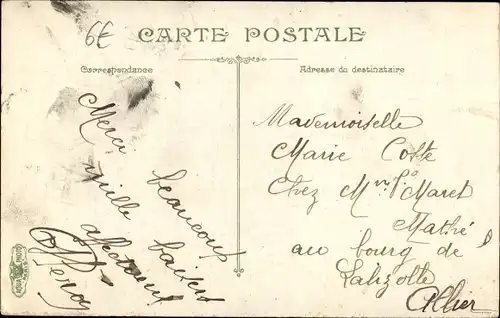 6€
CARTE POSTALE
Correspondance
Adresse du destinataire
Merci beaucoup
mille baisers
Mademoiselle
Marie Coste
Chez Mr Maret
Mathé
au bourg de
Lalizolle
Allier